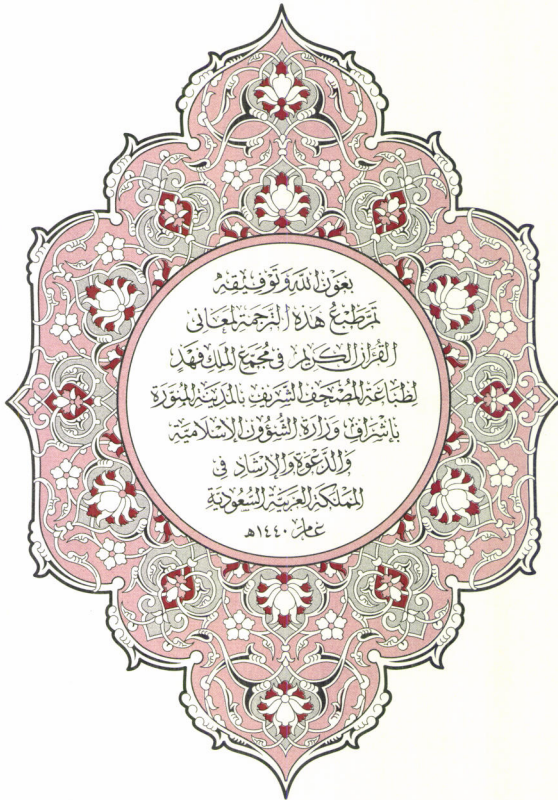 بعَوْن اللَّه وَتَوفيقِه
تَمَّ طَبْعُ هَذِه التَّرجمَة لمعَاني
القُرآن الكَريم في مُجَمَع المَلك فَهد
لِطبَاعَة المُصْحَف الشَّريف بالمَدينَة المُنوَّرَة
بإشْرَاف وزَارَة الشُّؤُون الإسْلَاميَّة
وَالدَّعْوَة وَالإرْشَاد في
المَملَكَة العَرَبيَّة السُّعُوديَّة
عَام ١٤٤٠هـ